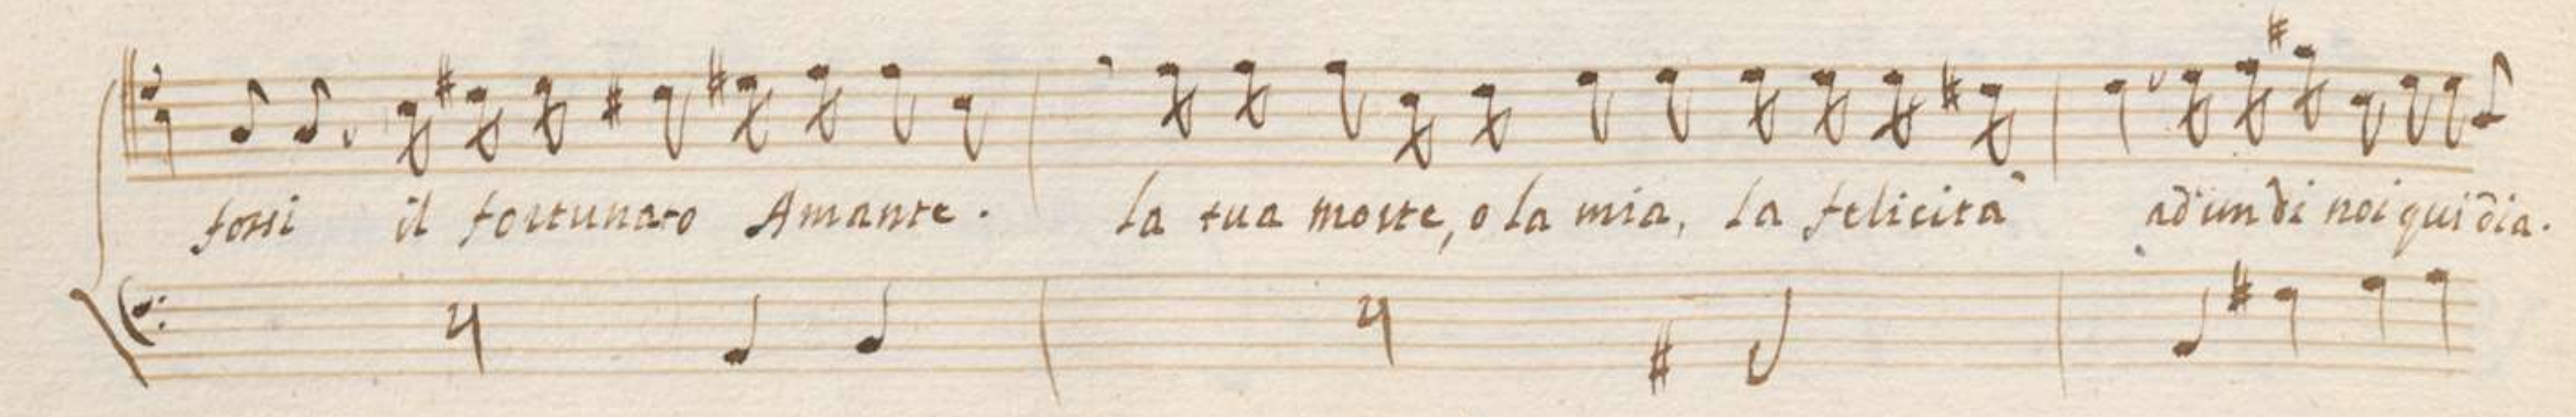 forsi il fortunato Amante. la tua morte, o la mia, la felicità ad'un di noi qui dia.